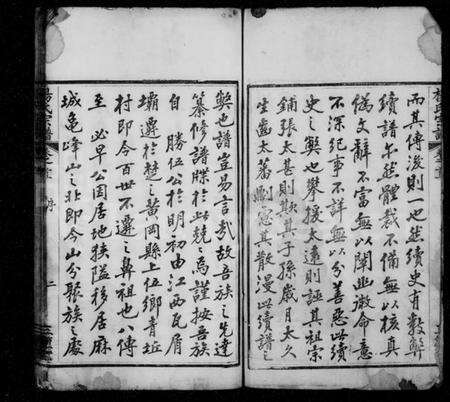 而其傳後則一也然續史有數弊
續譜亦然體裁不備無以核真
偽文辭不富無以闡幽微命意
不深紀事不詳無以分善惡此續
史之弊也攀援太遠則誣其祖宗
鋪張太甚則欺其子孫歲月太久
生齒太蕃則寃其散漫此續譜之
弊也譜豈易言哉故吾族之先達
纂修譜牒於此兢兢焉謹按吾族
自勝伍公於明初由江西瓦屑
壩遷於楚之黃岡縣上伍鄉青坵
村即今百世不遷之鼻祖也八傳
至早公因居地狹隘移居麻
城龜峰山之北即今山分聚族之處
楊氏宗譜
卷首
序
二